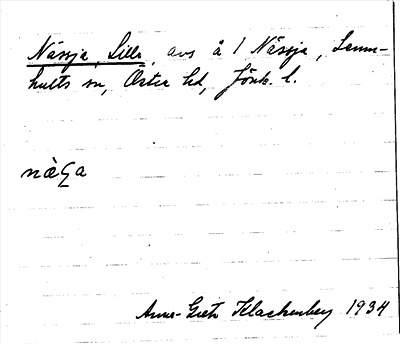 Nässja, Lilla, avs å 1 Nässja, Lann-
hults sn, Östra hd, Jönk. l.
Anna-Greta Klackenberg 1934